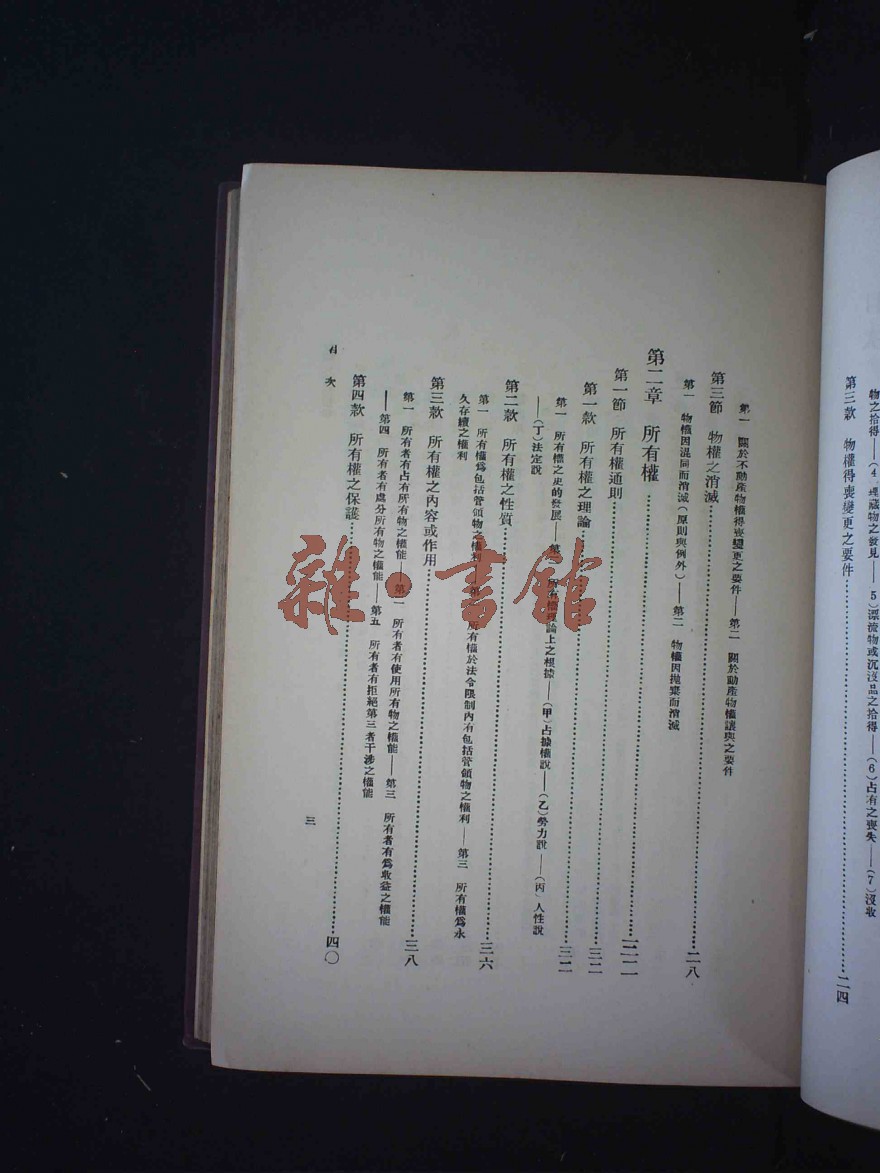 物之拾得——(4)埋藏物之發見——(5)漂流物或沉沒品之拾得——(6)占有之喪失——(7)沒收
第三款　物權得喪變更之要件……二四
第一　關於不動產物權得喪變更之要件——第二　關於動產物權讓與之要件
第三節　物權之消滅……二八
第一　物權因混同而消滅(原則與例外)——第二　物權因拋棄而消滅
第二章　所有權……三二
第一節　所有權通則……三二
第一款　所有權之理論……三二
第一　所有權之史的發展——第二　所有權理論上之根據——(甲)占據權說——(乙)勞力說——(丙)人性說
——(丁)法定說
第二款　所有權之性質……三六
第一　所有權爲包括管領物之權利——第二　所有權於法令限制內有包括管領物之權利——第三　所有權爲永
久存續之權利
第三款　所有權之內容或作用……三八
第一　所有者有占有所有物之權能——第二　所有者有使用所有物之權能——第三　所有者有爲收益之權能
——第四　所有者有處分所有物之權能——第五　所有者有拒絕第三者干涉之權能
第四款　所有權之保護……四〇
目次
三
雜·書館